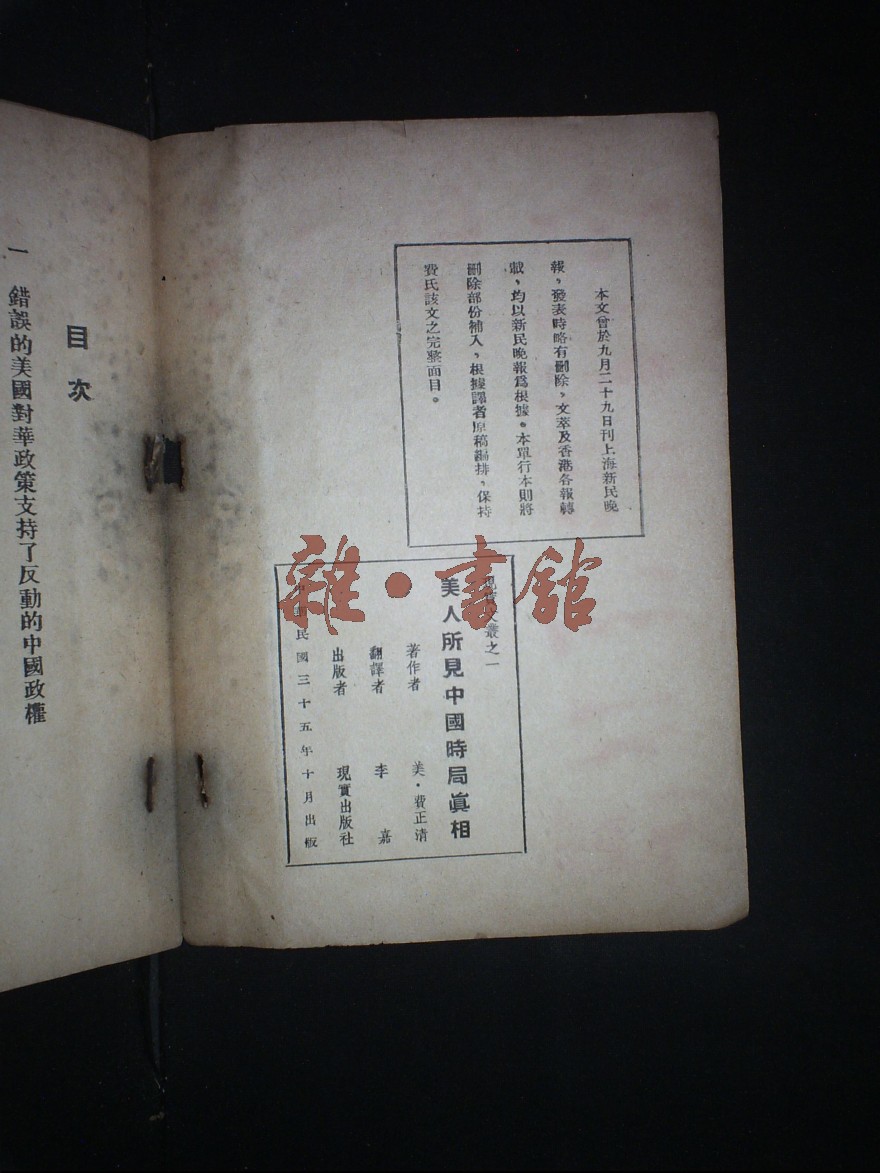 本文曾於九月二十九日刊上海新民晚
報，發表時略有刪除，文萃及香港各報轉
載，均以新民晚報爲根據。本單行本則將
刪除部份補入，根據譯者原稿編排，保持
費氏該文之完整面目。
叢之一
美人所見中國時局眞相
著作者 美·費正清
翻譯者 李嘉
出版者 現實出版社
民國三十五年十月出版
目次
一 錯誤的美國對華政策支持了反動的中國政權
雜·書館